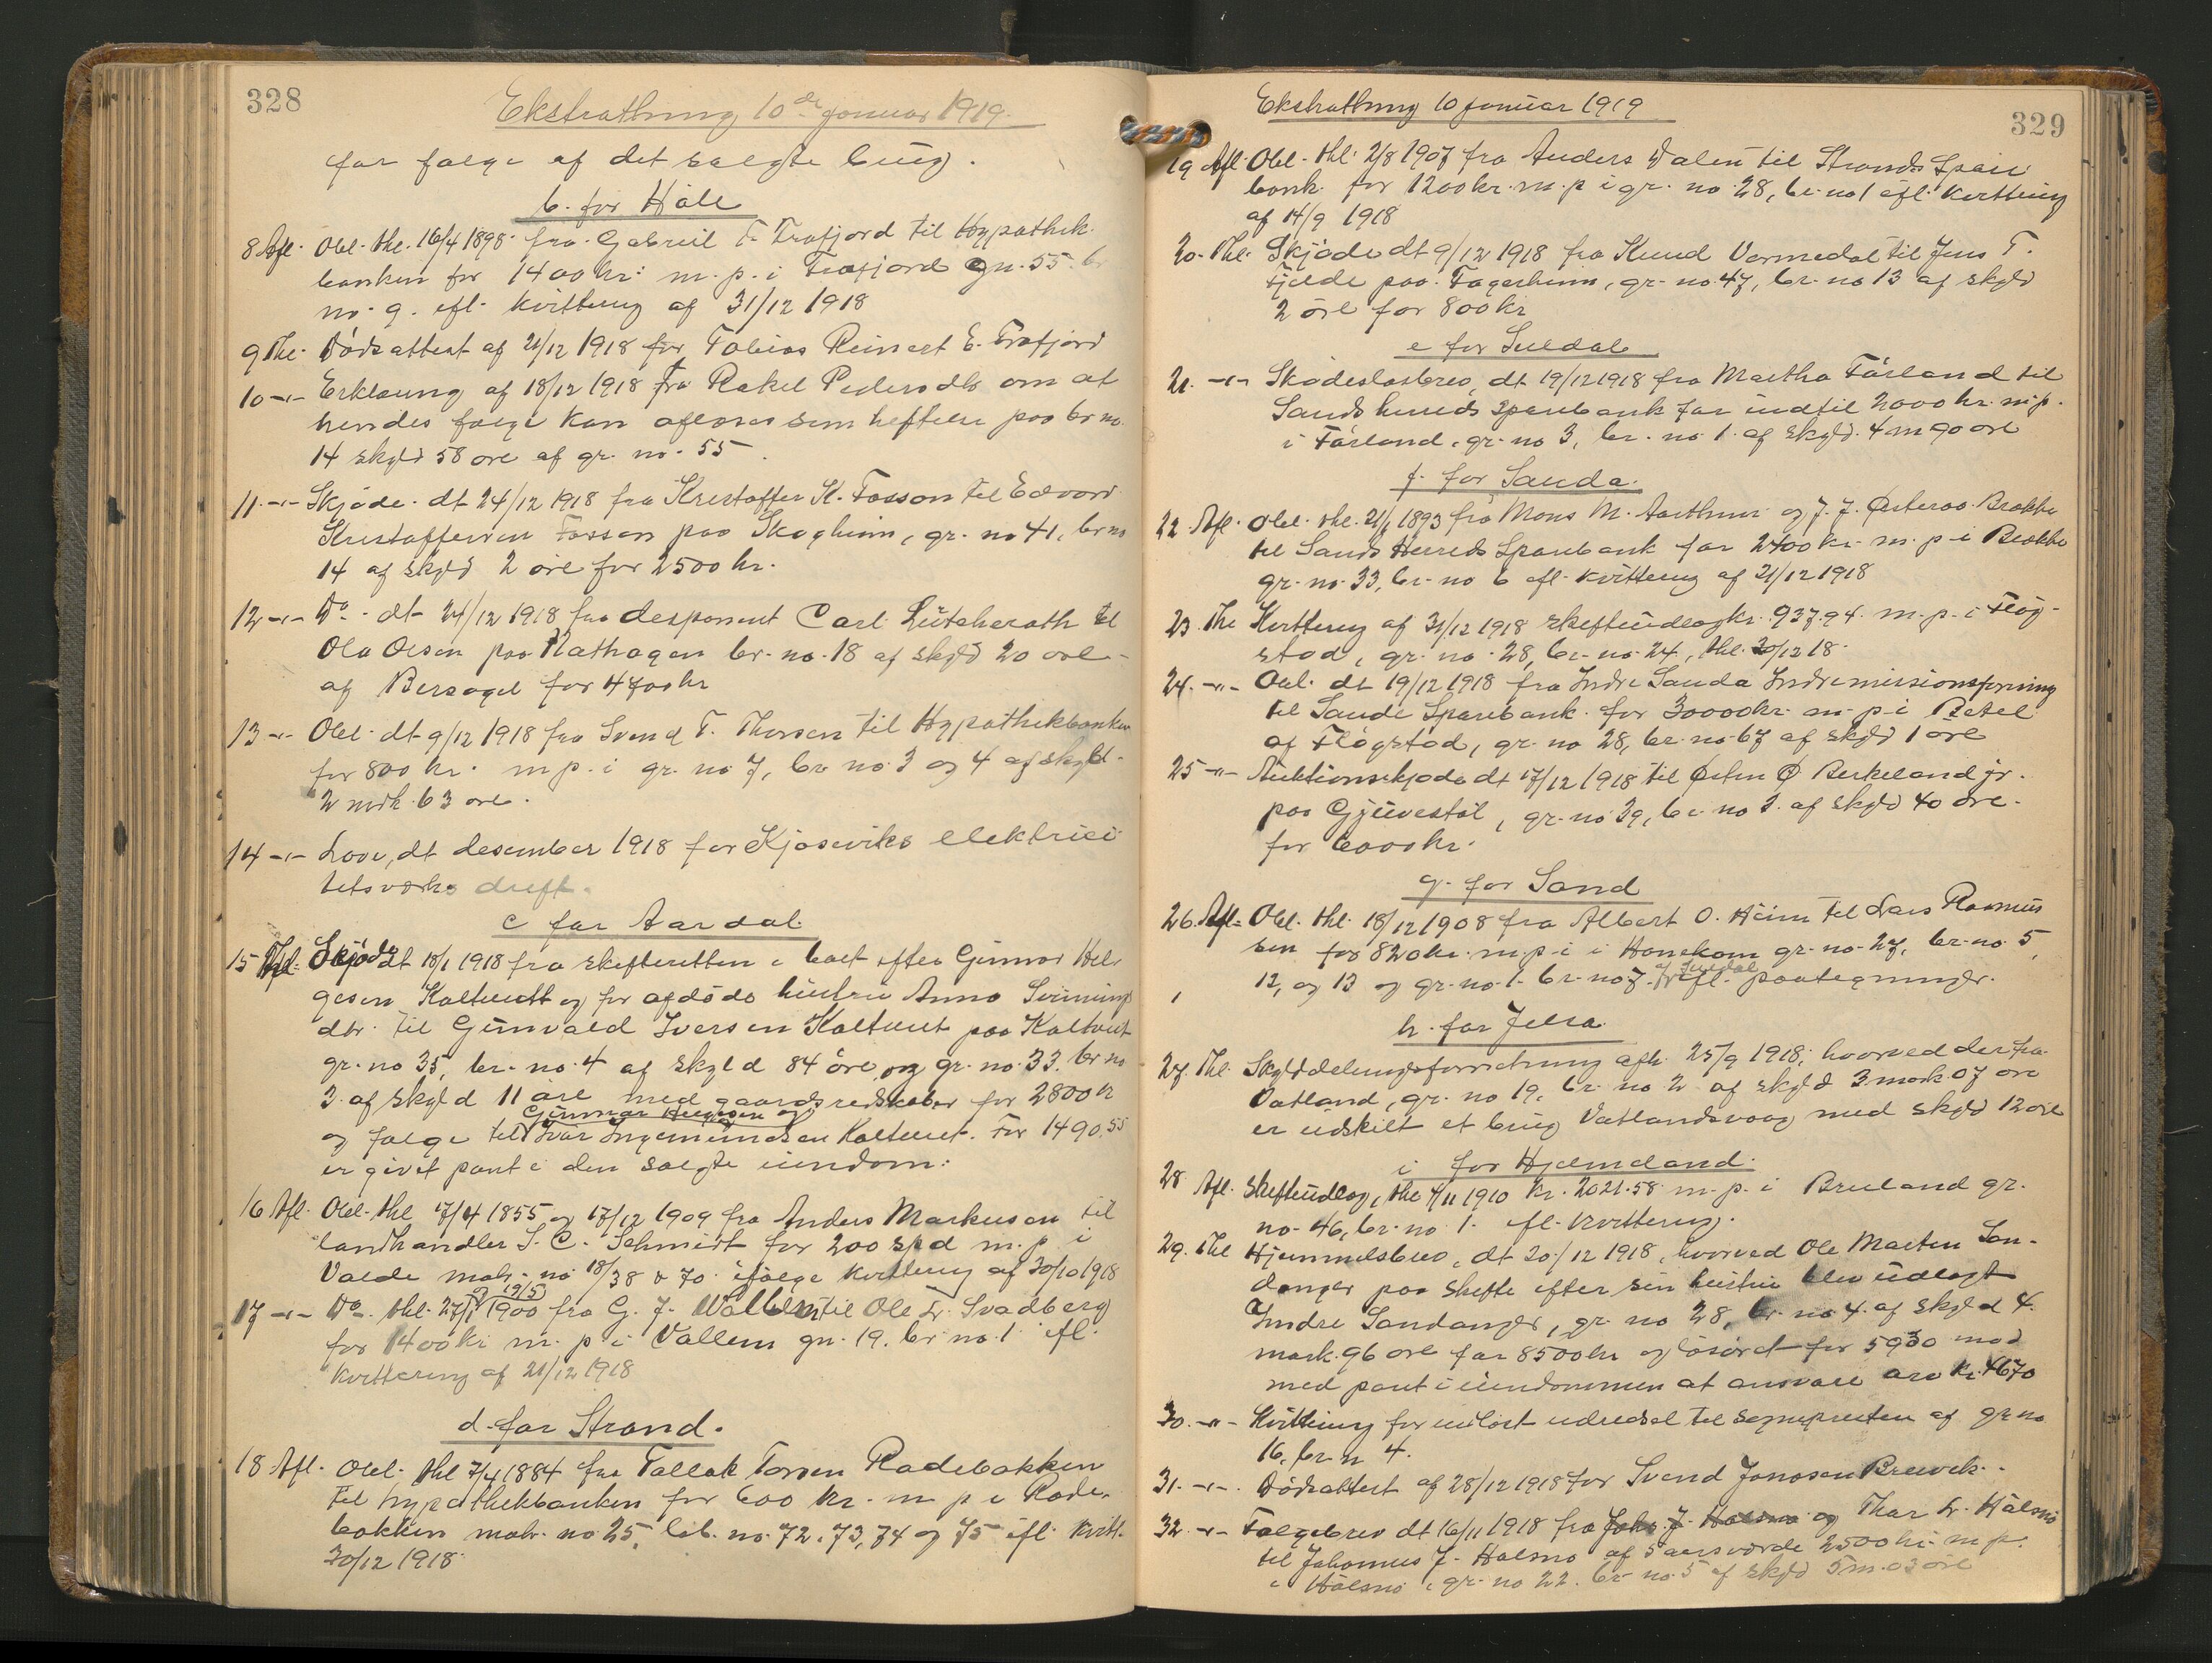 328
Ekstrathing 10de januar 1919.
for følge af det solgte brug.
b. for Håle
8 Afl. Obl. thl. 16/4 1898 fra Gabriel T. Frafjord til Hypothek-
banken for 1400 kr. m. p. i Frafjord gn. 55. br
no. 9. ifl. kvittering af 31/12 1918
9 Thl. Dødsattest af 21/12 1918 for Tobias Reinert E. Frafjord
10 -"- Erklæring af 18/12 1918 fra Rakel Pedersdtr om at
hendes følge kan aflæses som heftelse paa br no.
14 skyld 58 øre af gr. no. 55.
11. -"- Skjøde dt 24/12 1918 fra Kristoffer K. Fossan til Edvard
Kristoffersen Fossan paa Skogheim, gr. no 41, br no
14 af skyld 2 øre for 2500 kr.
12 -"- Do. dt 24/12 1918 fra desponent Carl Lütcherath til
Ola Olsen paa Nathagen br. no. 18 af skyld 20 øre
af Bersagel for 4700 kr
13 -"- Obl. dt 9/12 1918 fra Svend T. Thorsen til Hypothekbanken
for 800 kr. m. p. i gr. no 7, br no. 3 og 4 af skyld
2 mrk. 63 øre.
14 -"- Love, dt desember 1918 for Kjosviks elektrici
tetsverks drift.
c for Aardal
15 Thl. Skjøde dt 18/1 1918 fra skifteretten i boet efter Gunnar Hel-
gesen Kaltveit og for afdøde hustru Anna Sveinungs
dtr. til Gunvald Iversen Kaltveit paa Kaltveit
gr. no 35, br. no. 4 af skyld 84 øre og gr. no. 33. br no
3. af skyld 11 øre med gaardsredskaber for 2800 kr
Gunnar Helgesen og
og følge til Ivar Ingemundsen Kaltveit. For 1490.55
er givet pant i den solgte eiendom.
16 Afl. Obl. thl 17/4 1855 og 17/12 1909 fra Anders Markusen til
landhandler S. C. Schmidt for 200 spd m. p. i
Valde matr. no 18/38 & 70. ifølge kvittering af 30/10 1918
og 19/5
17 -"- Do. thl. 27/1 1900 fra G. J. Vallem til Ole L. Svadberg
for 1400 kr m. p. i Vallem gn. 19. br no. 1 ifl.
kvittering af 21/12 1918
d. for Strand.
18 Afl. Obl. thl 7/4 1884 fra Tallak Torsen Rodebakken
til hypothekbanken for 600 kr. m p i Rode-
bakken matr. no 25, lb. no. 72, 73, 74 og 75 ifl. kvitt.
30/12 1918.
329
Ekstrathing 10 januar 1919
19 Afl. Obl. thl. 2/8 1907 fra Anders Dalen til Strands Spare
bank. for 1200 kr. m. p i gr. no 28, br. no 1 ifl. kvittering
af 14/9 1918
20. Thl. Skjøde dt 9/12 1918 fra Knud Vormedal til Jens T.
Fjelde paa Fagerheim, gr. no. 47, br. no 13 af skyld
2 øre for 800 kr
e for Suldal
21. -"- Skadesløsbrev, dt 19/12 1918 fra Martha Fårland til
Sands herreds sparebank for indtil 2000 kr. m. p.
i Fårland, gr. no 3, br. no. 1. af skyld 4 m 90 øre
f. for Sauda.
22 Afl. Obl. thl. 21/1 1893 fra Mons M. Aarthun og J. J. Østeraa Brakke
til Sands Herreds Sparebank for 2400 kr. m. p. i Brække
gr. no. 33, br. no 6 ifl. kvittering af 21/12 1918
23. Thl Kvittering af 31/12 1918 skifteudlæg kr. 937.94. m. p. i Fløg-
stad, gr. no. 28, br. no 24, thl. 30/12 18.
24. -"- Obl. dt 19/12 1918 fra Indre Sauda Indremissionsforening
til Saude Sparebank for 30000 kr. m. p. i Betel
af Fløgstad, gr. no 28, br. no. 67 af skyld 1 øre
25 -"- Auktionsskjøde dt 17/12 1918 til Østen Ø Birkeland jr.
paa Gjuvestøl, gr. no 39, br. no 3. af skyld 40 øre.
for 6000 kr.
g. for Sand
26. Afl. Obl. thl. 18/12 1908 fra Albert O. Heim til Lars Rasmus
sen for 820 kr. m. p. i i Honekam gr. no. 27, br. no. 5,
12, og 13 og gr. no. 1. br. no 7. af Suldal ifl. paategninger.
h. for Jelsa.
27. Thl. Skylddelingsforretning afh. 25/9 1918, hvorved der fra
Vatland, gr. no 19, br. no 2 af skyld 3 mark 07 øre
er udskilt et brug Vatlandsvaag med skyld 12 øre
i for Hjelmeland.
28 Afl. Skifteudlæg, thl 4/11 1910 kr. 2021.58 m. p. i Bruland gr.
no. 46, br. no 1. ifl. kvittering.
29. Thl Hjemmelsbrev, dt 20/12 1918, hvorved Ole Marten San-
danger paa skifte efter sin hustru blev udlagt
Indre Sandanger, gr. no 28, br. no 4. af skyld 4.
mark. 96 øre for 8500 kr og løsøret for 5930 mod
med pant i eiendommen at ansvare arv kr. 4670
30. -"- Kvittering for indløst udredsel til sognepresten af gr no
16, br. n 4.
31. -"- Dødsattest af 28/12 1918 for Svend Jonasen Breivik.
32. -"- Følgebrev dt 16/11 1918 fra Johs. J. Halsnø og Thor L. Hålsnø
til Johannes J. Halsnø af 5 aarsværde 2500 kr. m p.
i Hålsnø, gr. no 22. br no. 5 af skyld 5 m. 03 øre